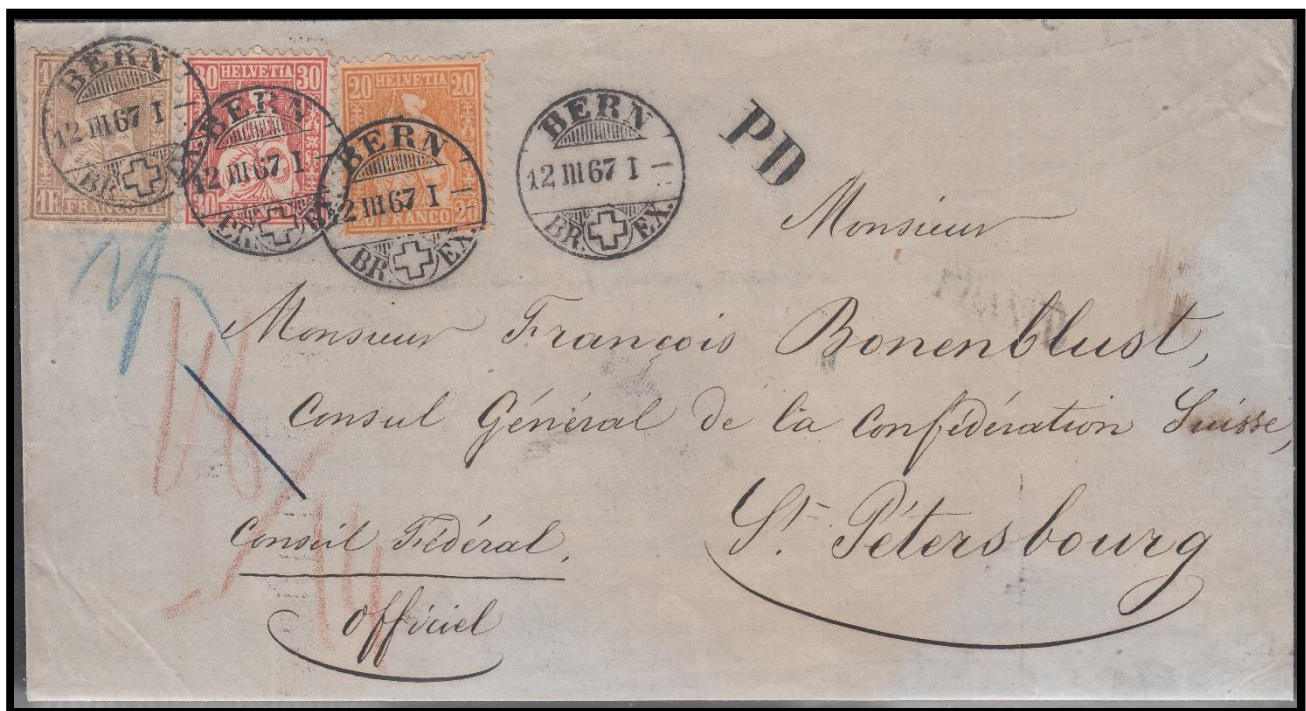 1F
FRANCO
BERN
12 III 67 I
BR. EX.
30 HELVETIA 30
30
BERN
12 III 67 I
20 HELVETIA 20
FRANCO 20
BERN
12 III 67 I
BR. EX.
BERN
12 III 67 I
BR. EX.
PD
Monsieur
FRANCO
Monsieur François Bonenblust,
Consul Général de la Confédération Suisse,
St. Pétersbourg
Conseil Fédéral.
Officiel